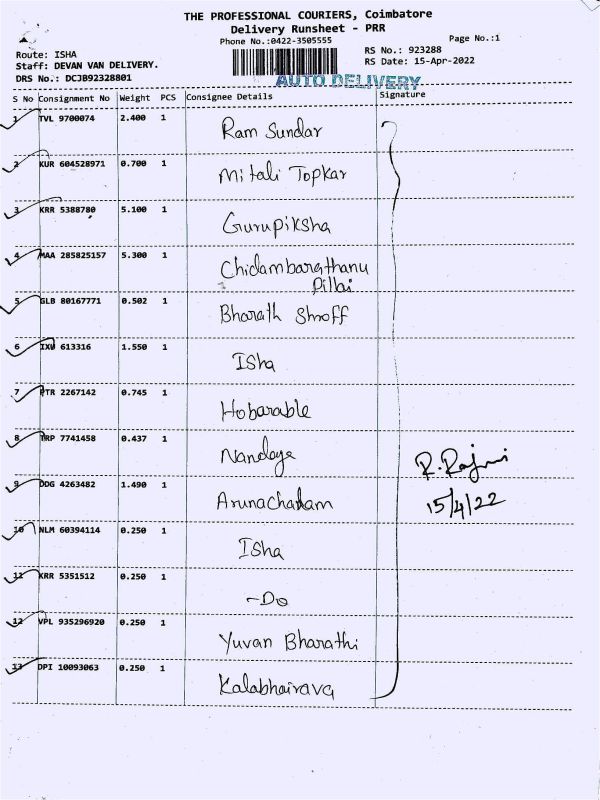 THE PROFESSIONAL COURIERS, Coimbatore
Delivery Runsheet - PRR
Phone No.:0422-3505555
Page No.:1
Route: ISHA
RS No.: 923288
Staff: DEVAN VAN DELIVERY.
RS Date: 15-Apr-2022
DRS No.: DCJB92328801
AUTO DELIVERY
S No Consignment No Weight PCS Consignee Details Signature
1 TVL 9700074 2.400 1 Ram Sundar
2 KUR 604528971 0.700 1 Mitali Topkar
3 KRR 5388780 5.100 1 Gurupiksha
4 MAA 285825157 5.300 1 Chidambarathanu
Pillai
5 GLB 80167771 0.502 1 Bharath Shroff
6 IXW 613316 1.550 1 Isha
7 PTR 2267142 0.745 1 Hobarable
8 TRP 7741458 0.437 1 Nandaya
R. Rajni
9 DDG 4263482 1.490 1 Arunachalam
15/4/22
10 NLM 60394114 0.250 1 Isha
11 KRR 5351512 0.250 1 -Do
12 VPL 935296920 0.250 1 Yuvan Bharathi
13 DPI 10093063 0.250 1 Kalabhairava